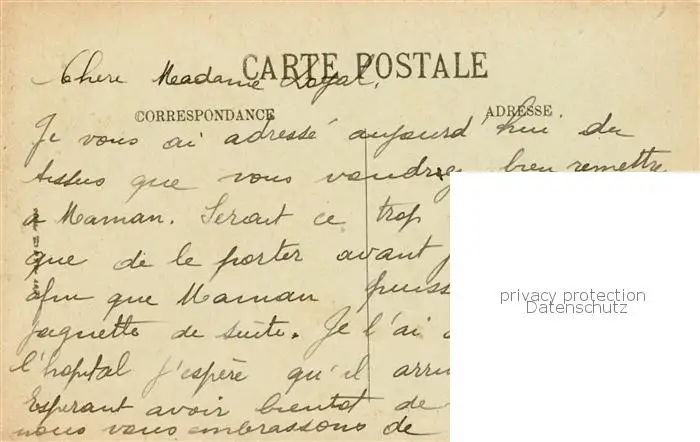 CARTE POSTALE
Chere Madame Loyal,
CORRESPONDANCE
ADRESSE
Je vous ai adressé aujourd'hui du
tissus que vous voudrez bien remettre
à Maman. Serait ce trop
que de le porter avant
afin que Maman puiss
jaquette de suite. Je l'ai
l'hopital j'espère qu'il arri
Esperant avoir bientot de
nous vous embrassons de
privacy protection
Datenschutz